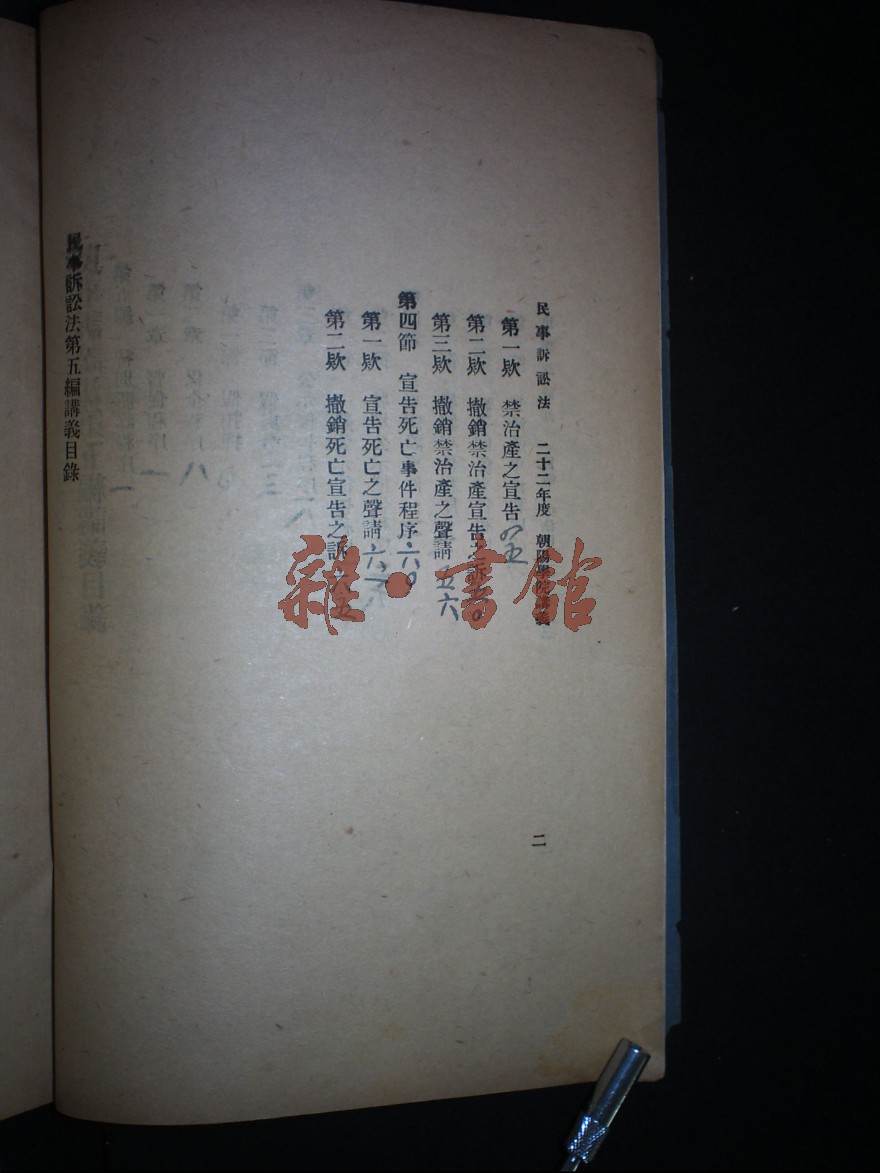 民事訴訟法 二十二年度 朝陽學院講義 二
第一欵 禁治產之宣告
第二欵 撤銷禁治產宣告之訴
第三欵 撤銷禁治產之聲請 五六
第四節 宣告死亡事件程序 六〇
第一欵 宣告死亡之聲請
第二欵 撤銷死亡宣告之訴
民事訴訟法第五編講義目錄
雜·書館